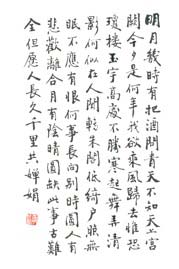 明月幾時有把酒問青天不知天上宮
闕今夕是何年我欲乘風歸去惟恐
瓊樓玉宇高處不勝寒起舞弄清
影何似在人間轉朱閣低綺戶照無
眠不應有恨何事長向別時圓人有
悲歡離合月有陰晴圓缺此事古難
全但願人長久千里共嬋娟